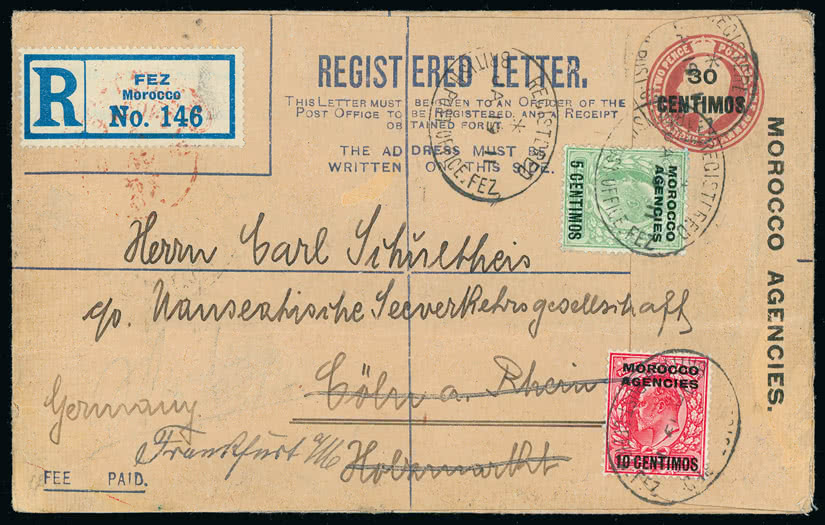 R
FEZ
Morocco
No. 146
REGISTERED LETTER.
THIS LETTER MUST BE GIVEN TO AN OFFICER OF THE
POST OFFICE TO BE REGISTERED, AND A RECEIPT
OBTAINED FOR IT.
THE ADDRESS MUST BE
WRITTEN ON THIS SIDE.
TWO PENCE
30
CENTIMOS
MOROCCO AGENCIES.
BRITISH POST OFFICE. FEZ
REGISTERED
MOROCCO
AGENCIES
5 CENTIMOS
POST OFFICE. FEZ
REGISTERED
Herrn Carl Schultheis
c/o. Hanseatische Seeverkehrsgesellschaft
Cöln a. Rhein
Germany
Frankfurt a/M
Holzmarkt
MOROCCO
AGENCIES
10 CENTIMOS
FEZ
FEE PAID.